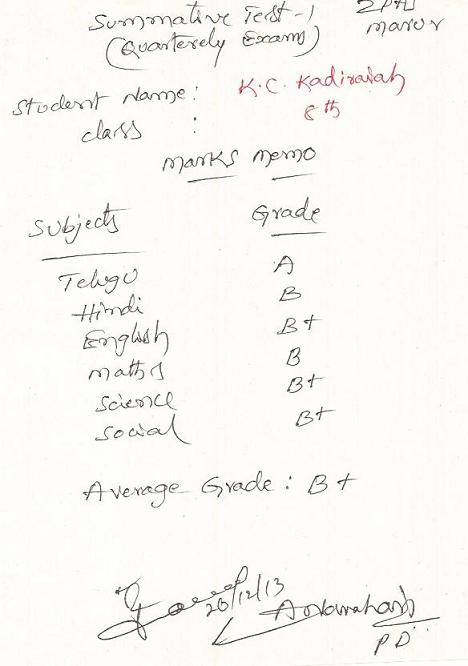 Summative Test-1
(Quarterely Exams)
Student Name : K.C. Kadiraiah
class : 8th
Marks Memo
Subjects Grade
Telugu A
Hindi B
English B+
maths B
Science B+
Social B+
Average Grade : B+
20/12/13
PD